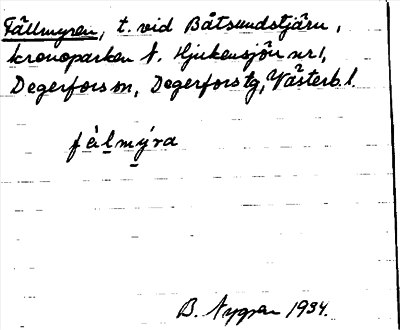 Fällmyren, t. vid Båtsundstjärn,
kronoparken N. Hjukensjön nr 1,
Degerfors sn, Degerfors tg, Västerb. l.
fȧlmýra
B. Nygren 1934.